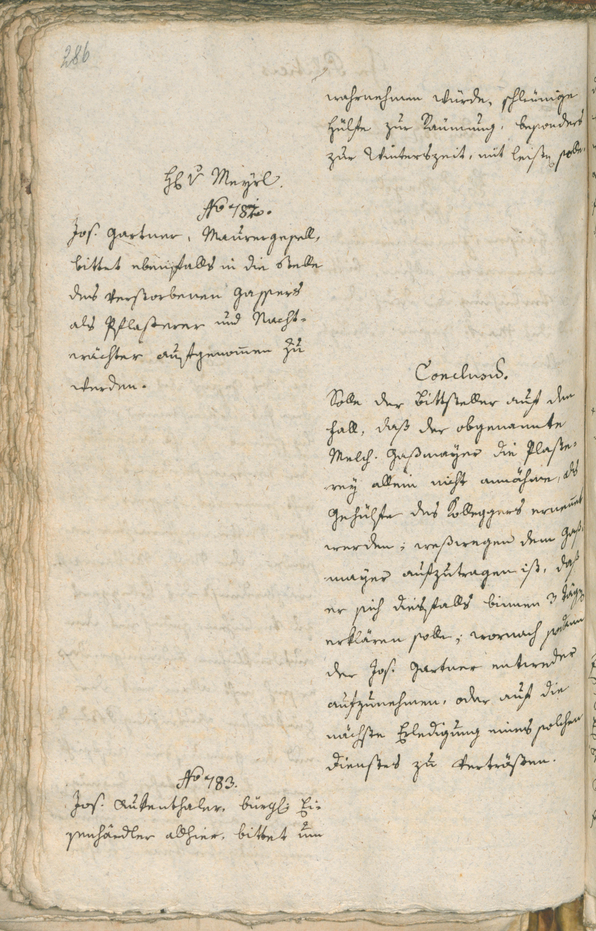 286
wahrnehmen würde, schleunige
Hülfe zur Raumung, besonders
zur Winterszeit, mit leisten solle.
H v Meyrl.
No 782.
Jos. Gartner, Maurergesell,
bittet ebenfalls in die Stelle
des verstorbenen Gassers
als Pflasterer und Nacht-
wächter aufgenommen zu
werden.
Conclusũ.
Solle der Bittsteller auf den
Fall, daß der obgenannte
Melch. Gaßmayer die Plaste-
rey allein nicht annähme, als
Gehülfe des Kolleggers ernennt
werden; weßwegen dem Gaß-
mayer aufzutragen ist, daß
er sich diesfalls binnen 3 Täg
erklären solle; wornach sodann
der Jos. Gartner entweder
aufzunehmen, oder auf die
nächste Erledigung eines solchen
Dienstes zu vertrösten.
No 783.
Jos. Aukenthaler, bürgl. Ei-
senhändler allhier, bittet um